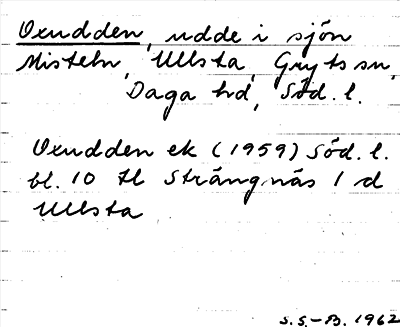 Oxudden, udde i sjön
Misteln, Ullsta, Gryts sn,
Daga hd, Söd. l.
Oxudden ek (1959) Söd. l.
bl. 10 till Strängnäs 1 d
Ullsta
S.S.-B. 1962